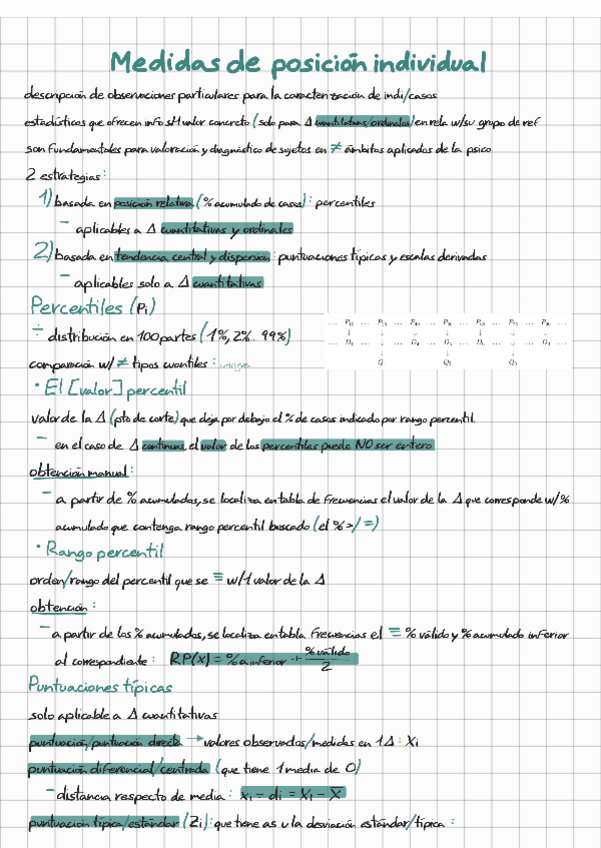 Medidas de posición individual
descripción de observaciones particulares para la caracterización de indi/casos
estadísticos que ofrecen info s/1 valor concreto (solo para Δ cuantitativas/ordinales) en rela w/su grupo de ref
son fundamentales para valoración y diagnóstico de sujetos en ≠ ámbitos aplicados de la psico
2 estrategias:
1) basada en posición relativa (% acumulado de casos): percentiles
- aplicables a Δ cuantitativas y ordinales
2) basada en tendencia central y dispersión: puntuaciones típicas y escalas derivadas
- aplicables solo a Δ cuantitativas
Percentiles (Pi)
÷ distribución en 100 partes (1%, 2%... 99%)
comparación w/ ≠ tipos cuantiles:
• El [valor] percentil
valor de la Δ (pto de corte) que deja por debajo el % de casos indicado por rango percentil.
- en el caso de Δ continuas, el valor de los percentiles puede NO ser entero
obtención manual:
- a partir de % acumulados, se localiza en tabla de frecuencias el valor de la Δ que corresponde w/%
acumulado que contenga rango percentil buscado (el % >/=)
• Rango percentil
orden/rango del percentil que se ≡ w/1 valor de la Δ
obtención:
- a partir de los % acumulados, se localiza en tabla frecuencias el ≡ % válido y % acumulado inferior
al correspondiente: RP(x) = % a inferior + % válido / 2
Puntuaciones típicas
solo aplicable a Δ cuantitativas
puntuación/puntuación directa → valores observados/medidas en 1 Δ: Xi
puntuación diferencial/centrada (que tiene 1 media de 0)
- distancia respecto de media: xi = di = Xi - X̄
puntuación típica/estándar (Zi): que tiene as u la desviación estándar/típica: